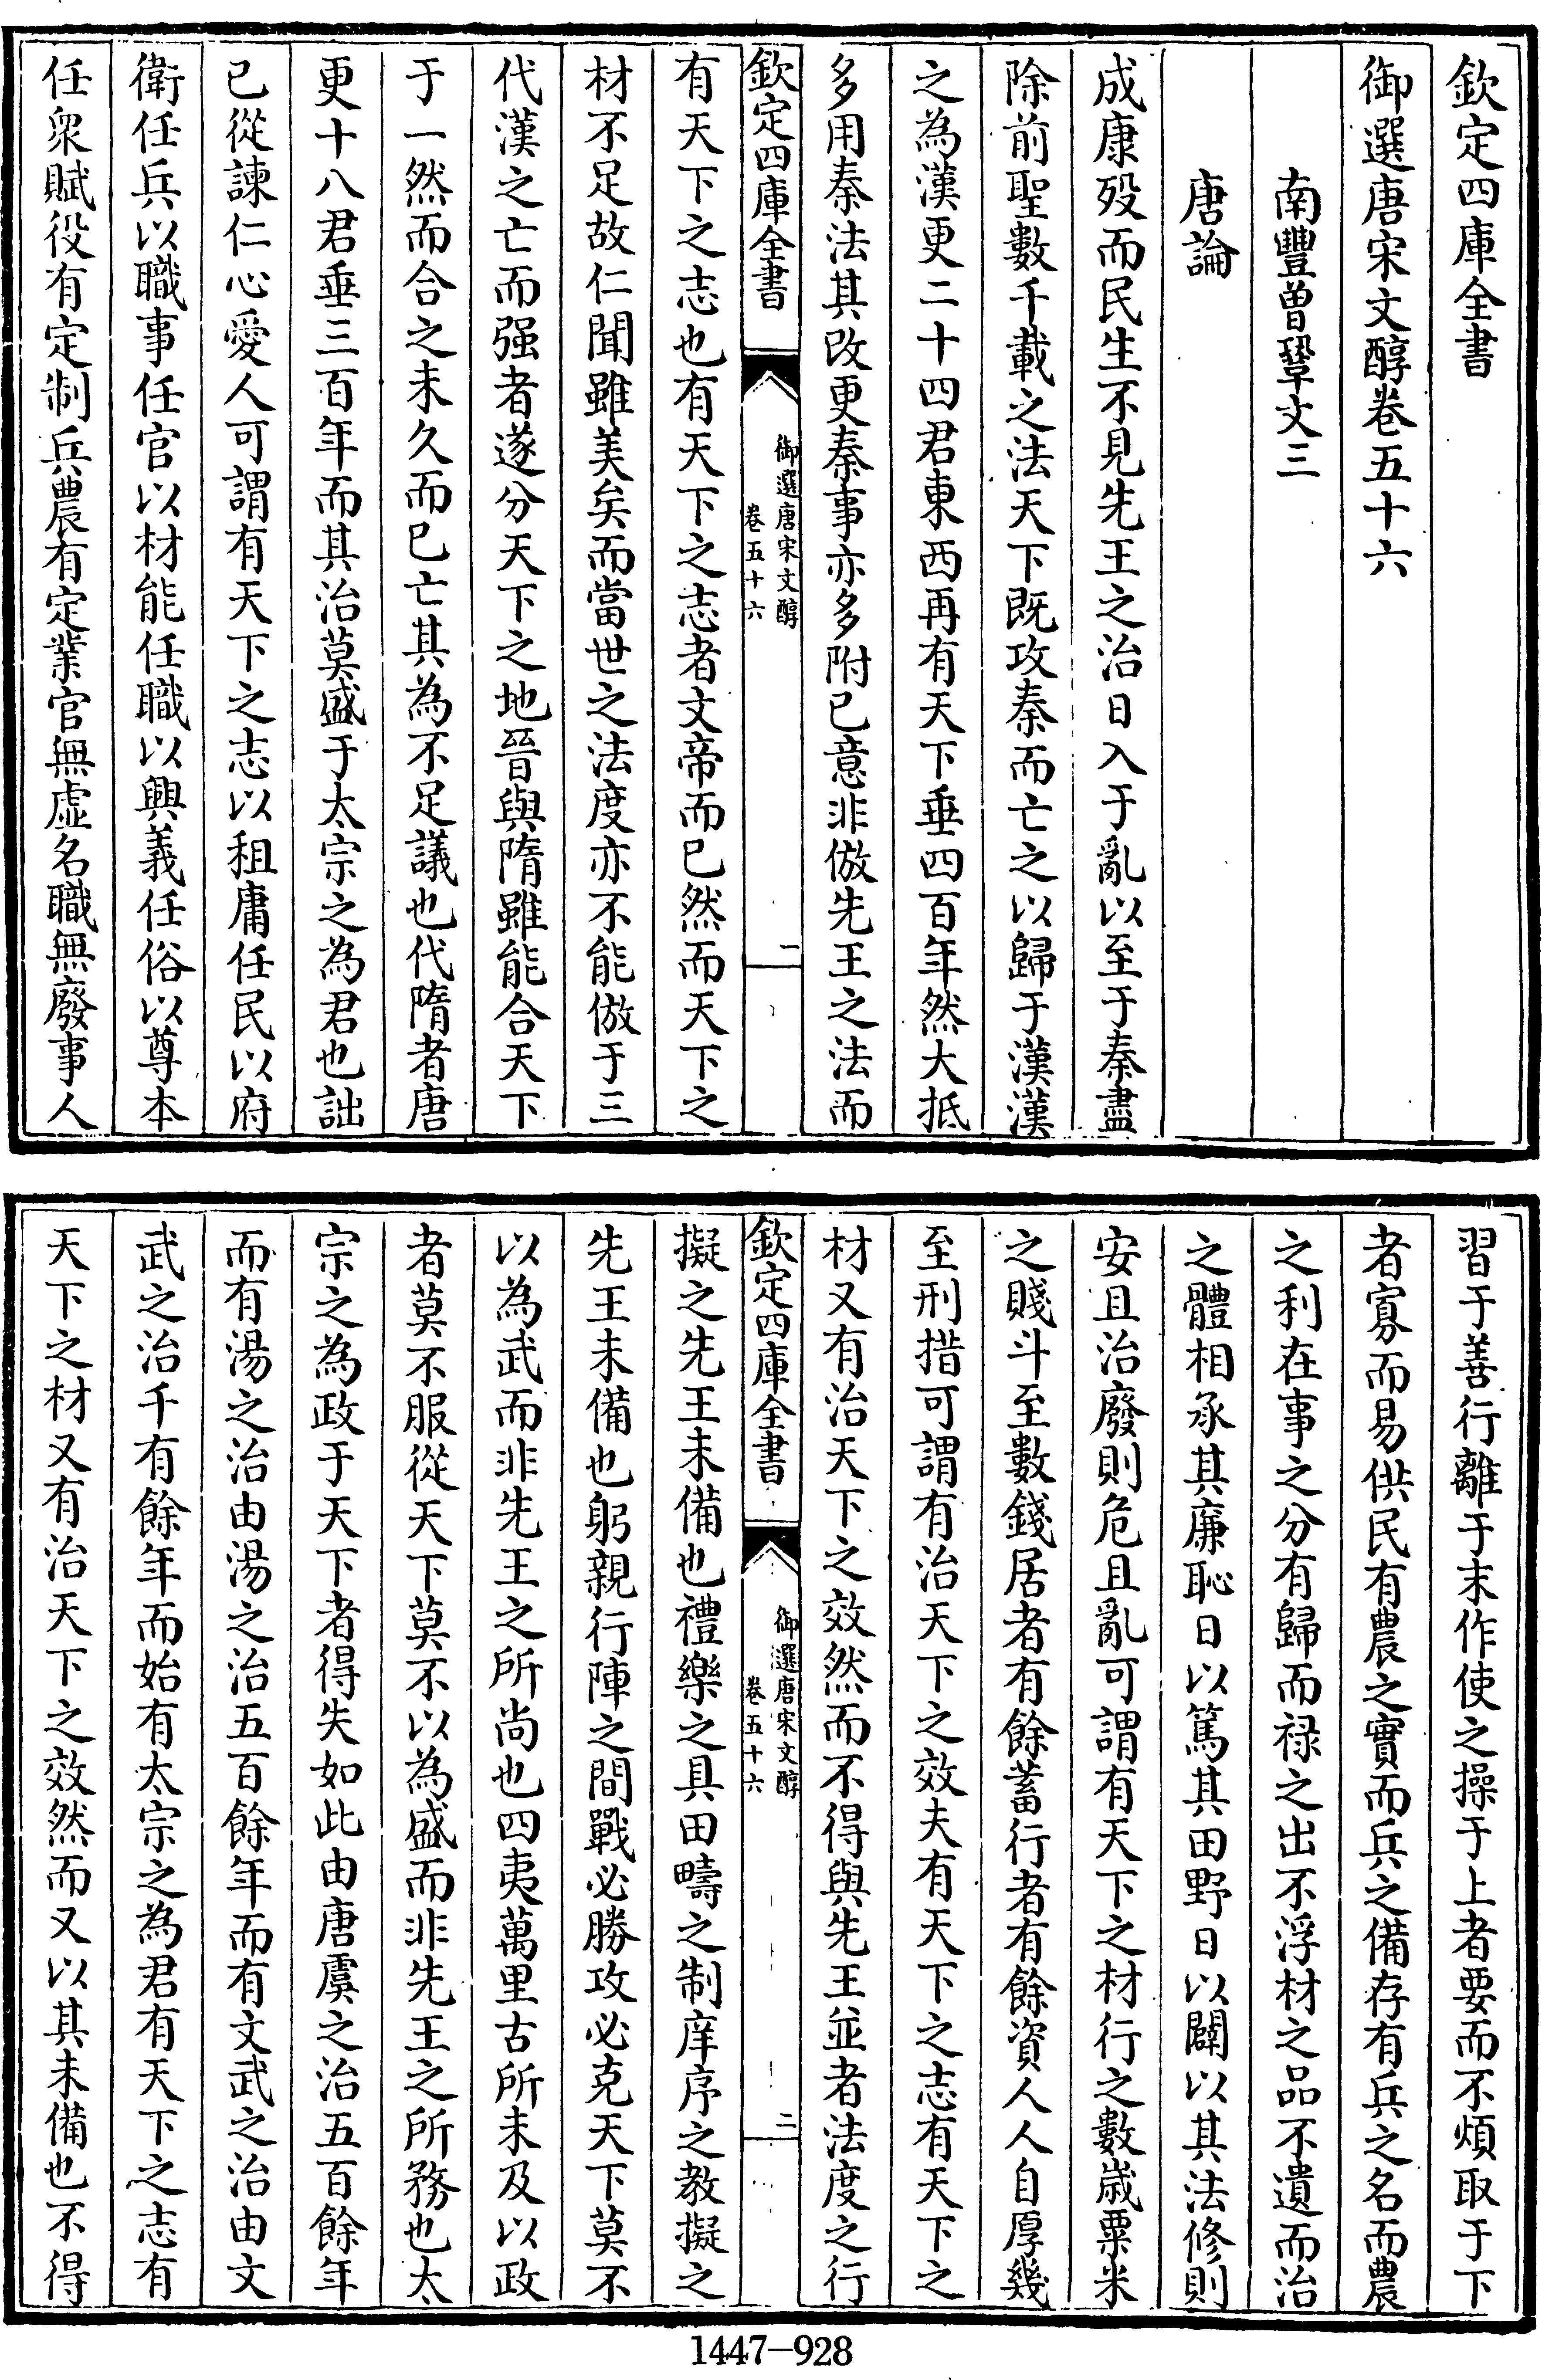 欽定四庫全書
御選唐宋文醇卷五十六
南豐曾鞏文三
唐論
成康殁而民生不見先王之治日入于亂以至于秦盡
除前聖數千載之法天下既攻秦而亡之以歸于漢漢
之為漢更二十四君東西再有天下垂四百年然大抵
多用秦法其改更秦事亦多附己意非倣先王之法而
欽定四庫全書
御選唐宋文醇
卷五十六
一
有天下之志也有天下之志者文帝而已然而天下之
材不足故仁聞雖美矣而當世之法度亦不能倣于三
代漢之亡而强者遂分天下之地晉與隋雖能合天下
于一然而合之未久而已亡其為不足議也代隋者唐
更十八君垂三百年而其治莫盛于太宗之為君也詘
已從諫仁心愛人可謂有天下之志以租庸任民以府
衛任兵以職事任官以材能任職以興義任俗以尊本
任衆賦役有定制兵農有定業官無虛名職無廢事人
習于善行離于末作使之操于上者要而不煩取于下
者寡而易供民有農之實而兵之備存有兵之名而農
之利在事之分有歸而禄之出不浮材之品不遺而治
之體相承其廉恥日以篤其田野日以闢以其法修則
安且治廢則危且亂可謂有天下之材行之數歲粟米
之賤斗至數錢居者有餘蓄行者有餘資人人自厚幾
至刑措可謂有治天下之效夫有天下之志有天下之
材又有治天下之效然而不得與先王並者法度之行
欽定四庫全書
御選唐宋文醇
卷五十六
二
擬之先王未備也禮樂之具田疇之制庠序之教擬之
先王未備也躬親行陣之間戰必勝攻必克天下莫不
以為武而非先王之所尚也四夷萬里古所未及以政
者莫不服從天下莫不以為盛而非先王之所務也太
宗之為政于天下者得失如此由唐虞之治五百餘年
而有湯之治由湯之治五百餘年而有文武之治由文
武之治千有餘年而始有太宗之為君有天下之志有
天下之材又有治天下之效然而又以其未備也不得
1447-928